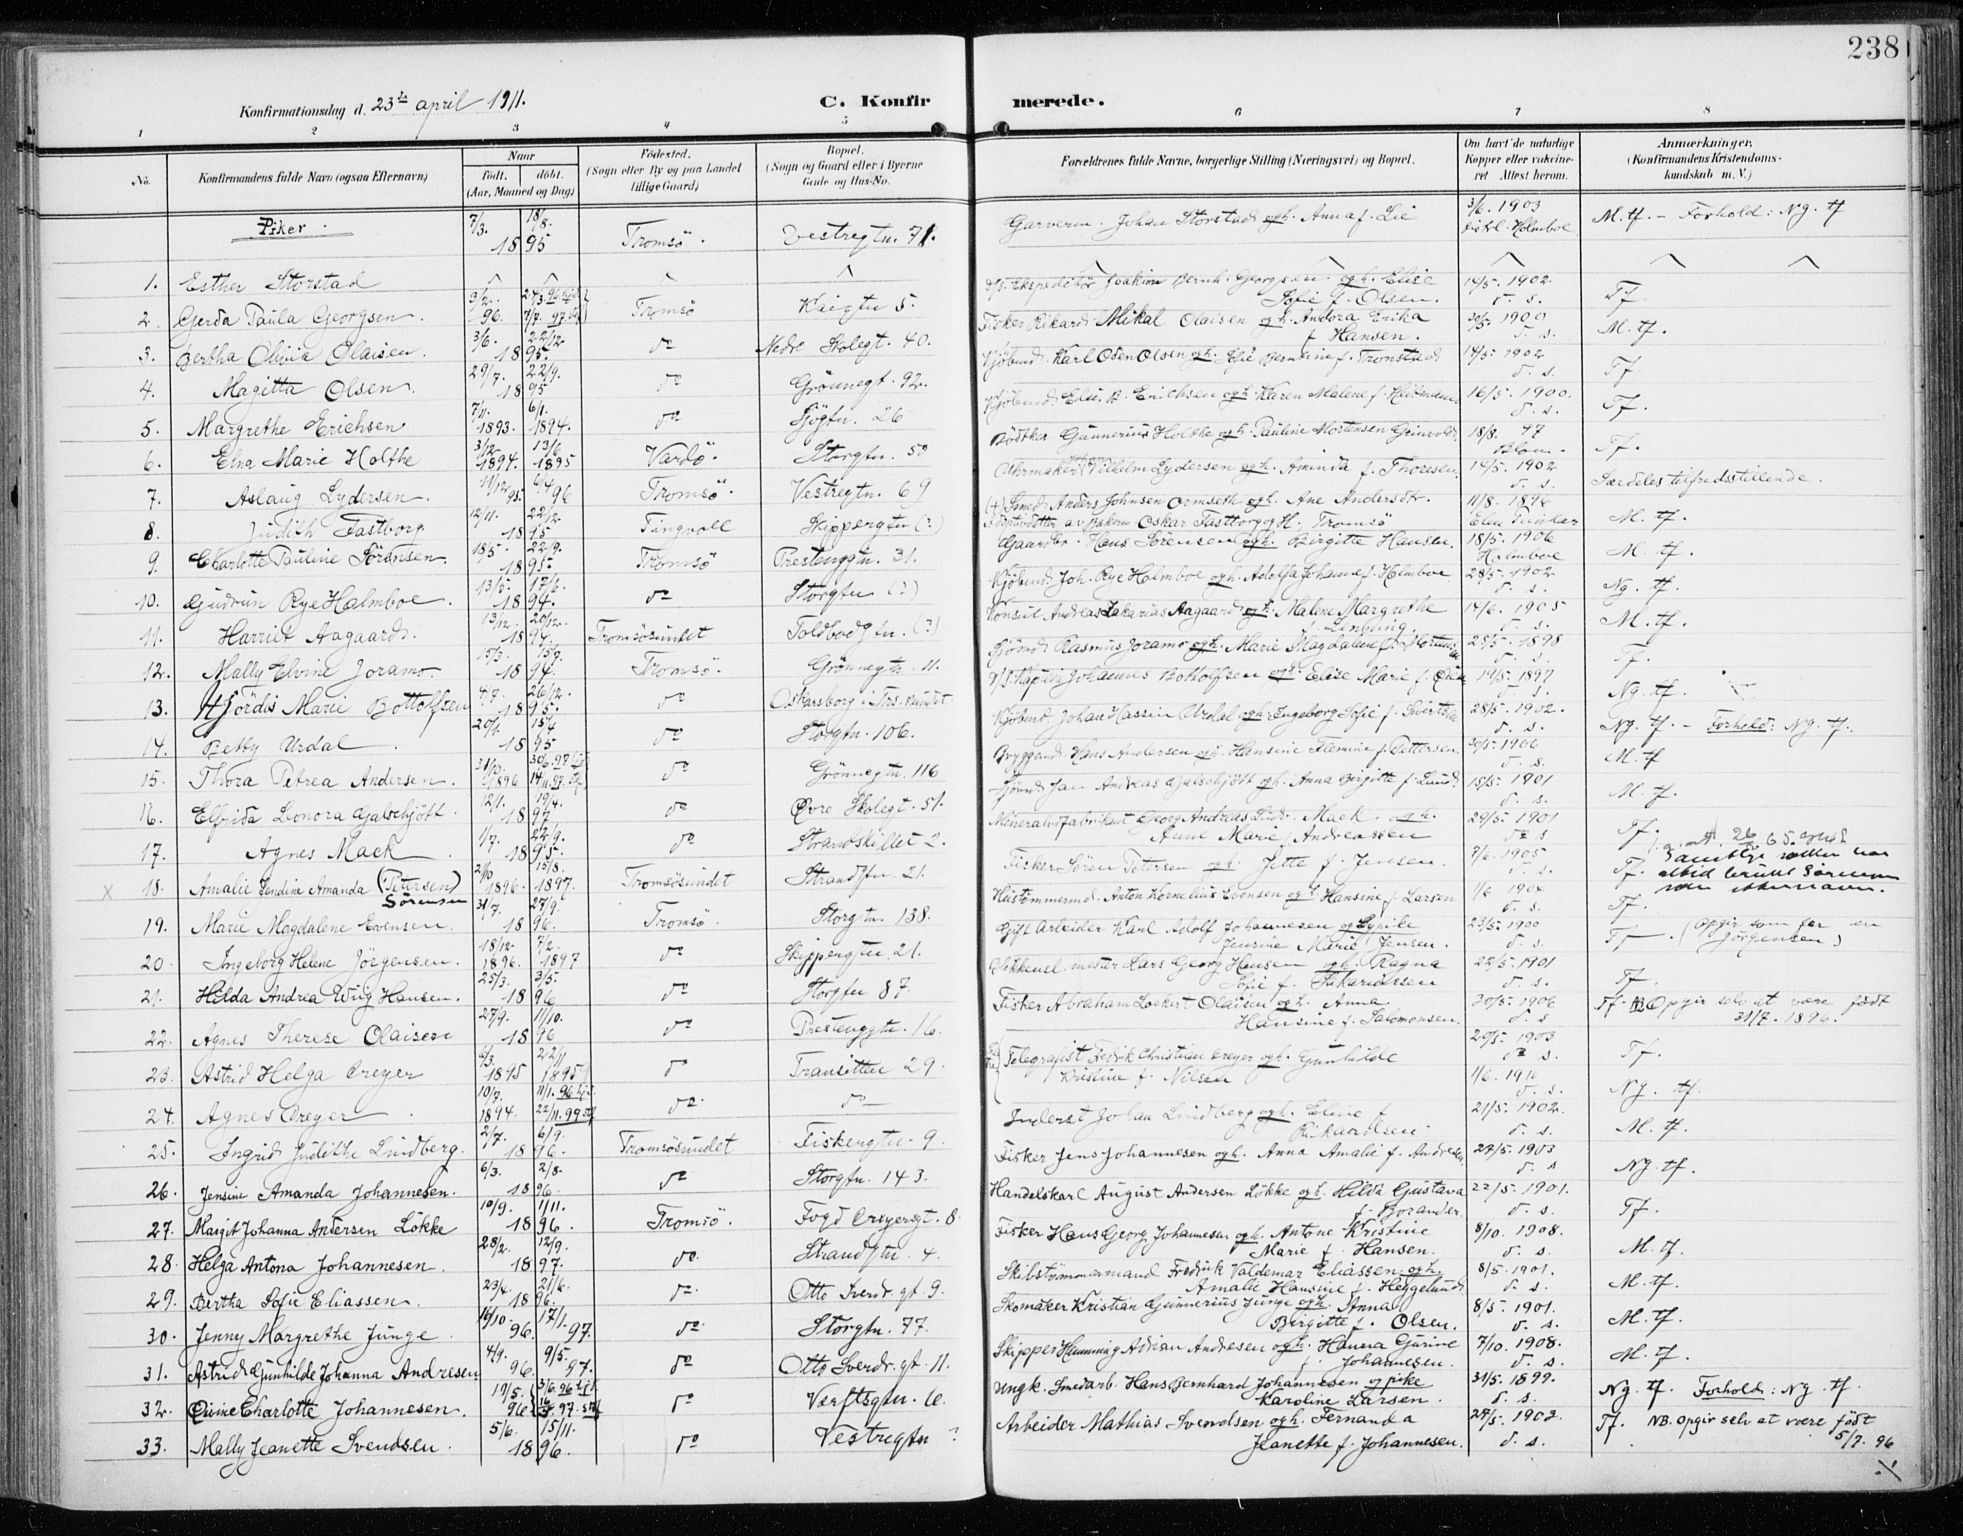 238
Konfirmationsdag d. 23de april 1911.
C. Konfirmerede.
1 2 3 4 5 6 7 8
No.
Konfirmandens fulde Navn (ogsaa Efternavn)
Naar
født. døbt.
(Aar, Maaned og Dag)
Fødested.
(Sogn eller By og paa Landet
tillige Gaard)
Bopæl.
(Sogn og Gaard eller i Byerne
Gade og Hus-No.
Forældrenes fulde Navne, borgerlige Stilling (Næringsvei) og Bopæl.
Om havt de naturlige
Kopper eller vaksine-
ret Attest herom.
Anmærkninger.
(Konfirmandens Kristendoms-
kundskab m. V.)
Piker.
1. Esther Storstad 7/3. 18/8. 1895 Tromsö. Vestregtn. 71. Garveren Johan Storstad og h. Anna f. Lie 3/6. 1903 Holmboe M. tf. - Forhold: Ng. tf
2. Gerda Paula Georgsen. 9/2. 96. 7/7. 97 Tromsö Kaigtn 5. Ekspeditör Joakim Bernh. Georgsen og h. Elise Sofie f. Olsen. 14/5. 1902 d. s. Tf.
3. Bertha Olivia Olaisen. 3/6. 22/12 1895. do Nedr. Skolegt. 40. Fisker Rikard Mikal Olaisen og h. Andora Erika f Hansen. 1900 d. s. M. tf.
4. Magitta Olsen. 29/7. 22/9. 1895 do Grönnegt. 92. Kjöbmd. Karl Osen Olsen og h. Sofie Berntine f. Tronstad 14/5. 1902 d. s. Tf.
5. Margrethe Erichsen 7/11. 1893. 6/1. 1894. do Sjögtn. 26 Kjöbmd. B. Erichsen og h. Karen Malene f. 16/5. 1900. d. s. Tf.
6. Elna Marie Holthe 3/12 1894. 13/6 1895 Vardö. Storgtn. 50 Bödtker Gunnerius Holthe og h. Pauline Mortensen 18/8. 97 Blom. Tf.
7. Aslaug Lydersen. 11/12 95. 6/4 96 Tromsö. Vestregtn. 69 Uhrmaker Johan Vilhelm Lydersen og h. Aminda f. Thoresen. 14/5. 1902 d. s. Særdeles tilfredsstillende.
8. Judith Fastborg 12/11. 22/12. 1895 Tingvoll Skippergtn (?) Smed Anders Johnsen Ormseth og h. Ane Andersdtr. Adoptivdatter av Bakerm Oskar Fasttorg og H. Tromsö 11/8. 1896 M. tf.
9. Charlotte Pauline Sörensen. 18/5. 22/9. 1895. Tromsö Presteng gtn. 31. Gaardbr. Hans Sörensen og h. Birgitte Hansen. 18/5. 1906 Holmboe M. tf.
10. Gudrun Rye Holmboe. 13/5. 17/6. 1894. do Storgtn (?) Kjöbmd. Joh. Rye Holmboe og h. Adolfa Johanne f. Holmboe 28/5. 1902 d. s. Ng. tf.
11. Harriet Aagaard. 13/12. 20/12. 1894. Tromsösundet Toldbodgtn. (?) Konsul Andreas Zakarias Aagaard og h. Malene Margrethe 14/6. 1905 d. s. M. tf.
12. Mally Elvine Joramo. 1894. Tromsö. Grönnegtn. 11. Rasmus Joramo og h. Marie Magdalene f. 28/5. 1898 d. s. Tf.
13. Hjördis Marie Bottolfsen 4/7. 26/12. 1895. do Oskarsborg i Trs.sundet Johannes Bottolfsen og h. Elise Marie f. 19/5. 1897 d. s. Ng. tf.
14. Betty Urdal 20/1. 15/4 1895 do Storgtn. 106. Kjöbmd. Johan Hassin Urdal og h. Ingeborg Sofie f. 28/5. 1902. d. s. Ng. tf. - Forhold: Ng. tf.
15. Thora Petrea Andersen. 1896 do Grönnegtn. 116 Bryggemd. Hans Andersen og h. Hansine Flemine f. Pettersen. 20/5. 1906 d. s. M. tf
16. Elfrida Leonora Galschjött. 12/1. 19/4. 1897 do Övre Skolegt. 51. Jan Andreas Galschjött og h. Anna Birgitte f. Lund. 18/5. 1901 d. s. M. tf.
17. Agnes Mack 1/7. 22/9. 1895. do Strandskillet 2. Mineralvfabrikant Georg Andreas Mack og h. Anne Marie Andreassen 29/5. 1901 do s Tf.
x 18. Amalie Jendine Amanda (Petersen) Sörensen 1896. 15/8. 1897. Tromsösundet Strandgtn. 21. Fisker Sören Petersen og h. Jette f. Jensen. 7/6. 1905 d. s. Tf.
altid brukt Sörensen
som etternavn.
19. Marie Magdalene Evensen. 31/7. 27/9. 1896. Tromsö. Storgtn. 138. Hustömmermd. Anton Kornelius Evensen og h. Hansine f. Larsen 1/6. 1904 d. s. Tf.
20. Ingeborg Helene Jörgensen. 18/12. 1896. 7/2. 1897 do Skippergtn. 21. Gift Arbeider Karl Adolf Johannesen og pike Jensine Marie Jensen. 23/5. 1900 d. s. Tf. (Opgir som far en Jörgensen)
21. Hilda Andrea Wiig Hansen. 25/3. 3/5. 1896 do Storgtn 87. Lars Georg Hansen og h. Ragna Sofie f. Zakariassen 22/5. 1901 d. s. Tf.
22. Agnes Therese Olaisen 27/9. 11/10. 1896 do Prestenggtn. 16. Fisker Abraham Lockert Olaisen og h. Anna Hansine f. Salomonsen. 20/5. 1906 d. s Tf. NB Opgir selv at være født 31/7. 1896.
23. Astrid Helga Creyer 6/3. 1895 22/11 1895 do Transittgtn 29. Telegrafist Fedrik Christian Creyer og h. Gunhilde Kristine f. Nilsen 20/5. 1903 do s. Tf.
24. Agnes Creyer 10/7. 1894. 11/1. 96 22/11. 99 do. do 1/6. 1910 d. s. Ng. tf.
25. Ingrid Judithe Lindberg. 2/7. 6/9. 1896. Tromsösundet Fiskergtn. 9. Inderst Johan Lindberg og h. Eline f Rikardsen. 21/5. 1902. d. s. M. tf.
26. Jensine Amanda Johannesen. 6/3. 2/8. 1896. do Storgtn. 143. Fisker Jens Johannesen og h. Anna Amalie f. Andresen. 27/5. 1903 d. s Ng. tf.
27. Margit Johanna Andersen Lökke 10/9. 1/11. 1896. Tromsö. Fogd Creyersgt. 8. Handelskarl August Andersen Lökke og h. Hilda Gustava f. Borander. 22/5. 1901. d. s. Tf.
28. Helga Antona Johannesen. 28/2. 12/9. 1897. do. Strandgtn. 4. Fisker Hans Georg Johannesen og h. Antone Kristine Marie f. Hansen. 8/10. 1908. d. s. M. tf.
29. Bertha Sofie Eliassen. 23/4. 21/6. 1896. do. Otto Sverdr. gt. 9. Skibstömmermand Fredrik Valdemar Eliassen og h. Amalie Hansine f. Heggelund. 8/5. 1901. d. s. M. tf.
30. Jenny Margrethe Junge. 16/10. 96. 17/1. 97. do. Storgtn. 77. Skomaker Kristian Gunnerius Junge og h. Anna Birgitte f. Olsen. 8/5. 1901. d. s. M. tf.
31. Astrid Gunhilde Johanna Andresen 4/9. 96 9/5 97. do Otto Sverdr. gt. 11. Skipper Hemming Adrian Andresen og h. Hanna Gurine f. Johannesen. 7/10. 1908. d. s. M. tf.
32. Qvine Charlotte Johannesen. 19/5. 96 3/6. 96 97. do Verftsgtn. 6. Ungk. Smedarb. Hans Bernhard Johannesen og pike Karoline Larsen. 31/5. 1899. d. s. Ng. tf. Forhold: Ng. tf.
33. Mally Jeanette Svendsen. 5/6. 15/11. 1896. do Vestregtn ? Arbeider Mathias Svendsen og h. Fernanda Jeanette f. Johannesen. 27/5. 1903. d. s. Tf. NB. Opgir selv at være født 5/7. 96